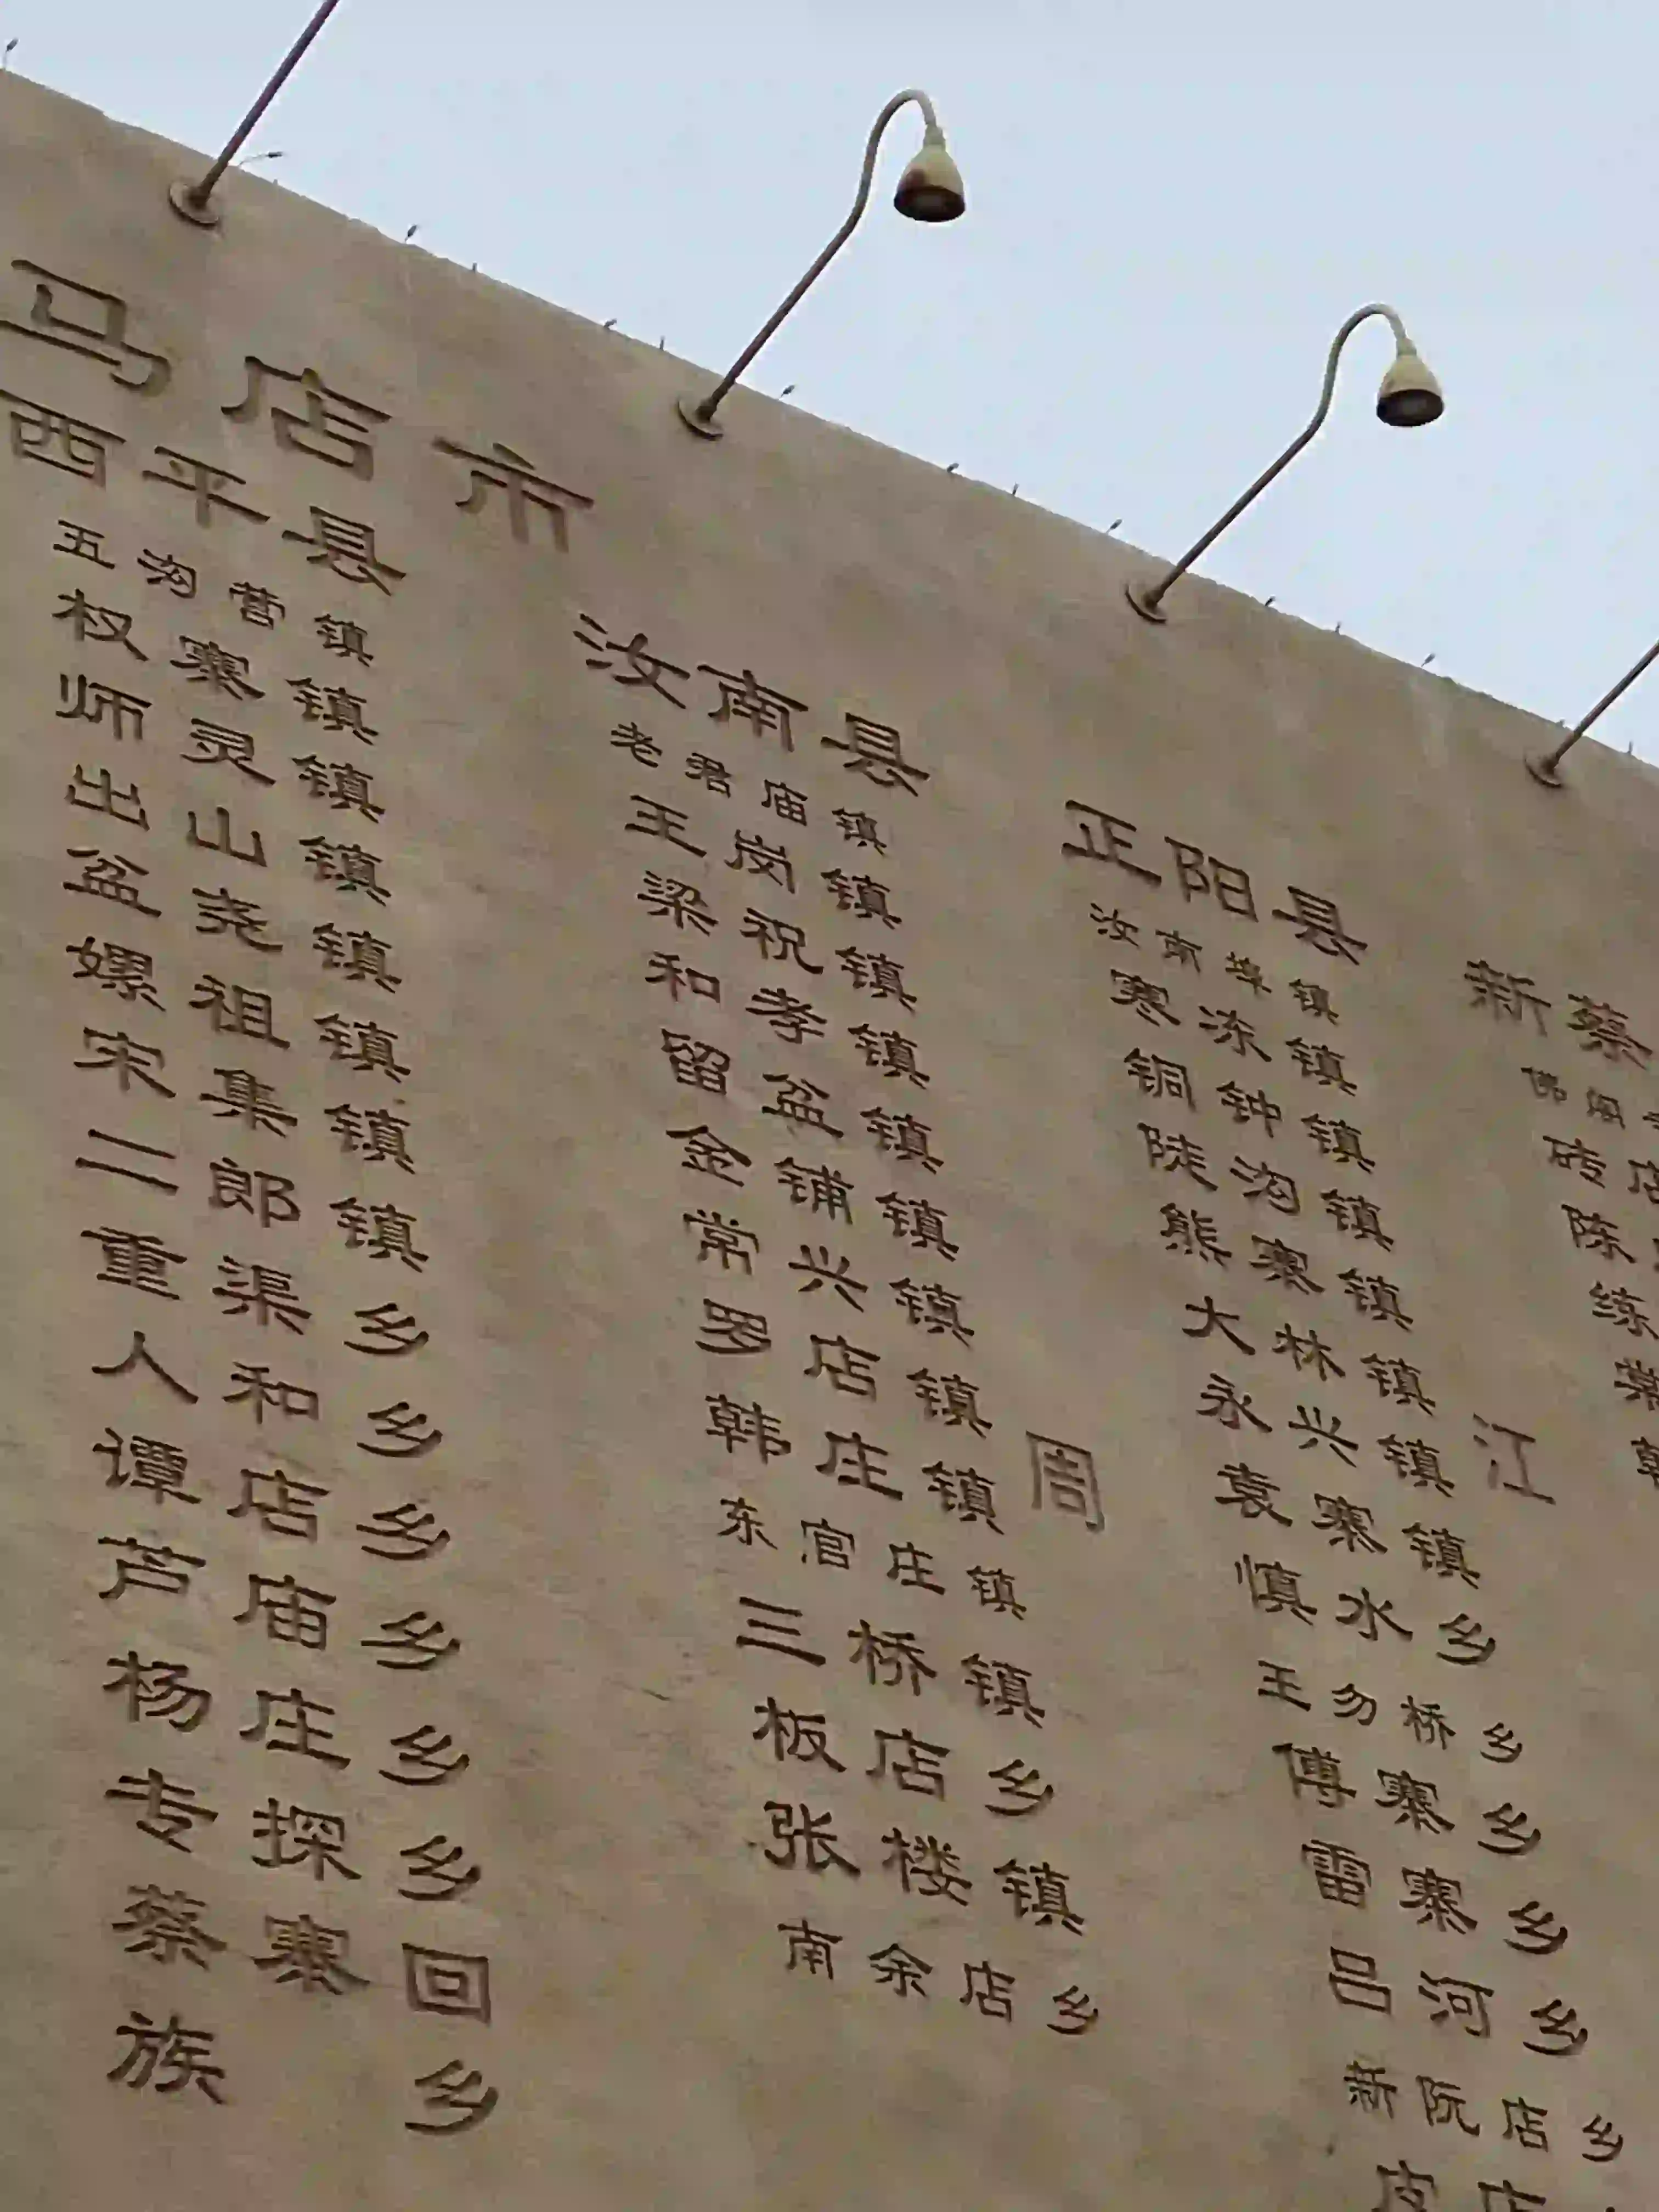 马店市
西平县
五沟营镇
权寨镇
师灵镇
出山镇
盆尧镇
嫘祖镇
宋集镇
二郎镇
重渠乡
人和乡
谭店乡
芦庙乡
杨庄乡
专探乡
蔡寨回
族乡
汝南县
老君庙镇
王岗镇
梁祝镇
和孝镇
留盆镇
金铺镇
常兴镇
罗店镇
韩庄镇
东官庄镇
三桥镇
板店乡
张楼镇
南余店乡
周
正阳县
汝南埠镇
寒冻镇
铜钟镇
陡沟镇
熊寨镇
大林镇
永兴镇
袁寨镇
慎水乡
王勿桥乡
傅寨乡
雷寨乡
吕河乡
新阮店乡
皮店
江
新蔡
佛阁
砖店
陈
练